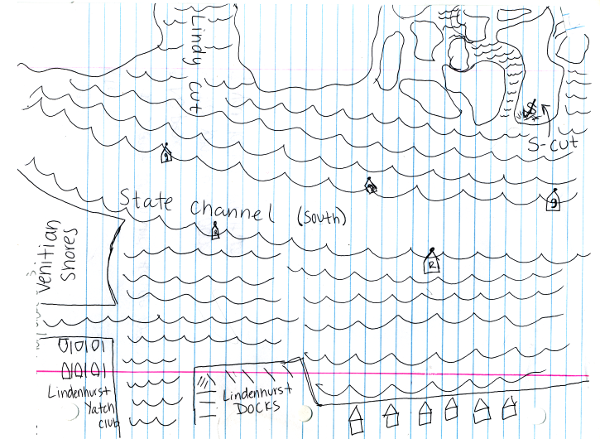 Lindy cut
$
S-cut
9
R
State Channel (South)
Venitian
Shores
Lindenhurst
Yatch
club
Lindenhurst
DOCKS